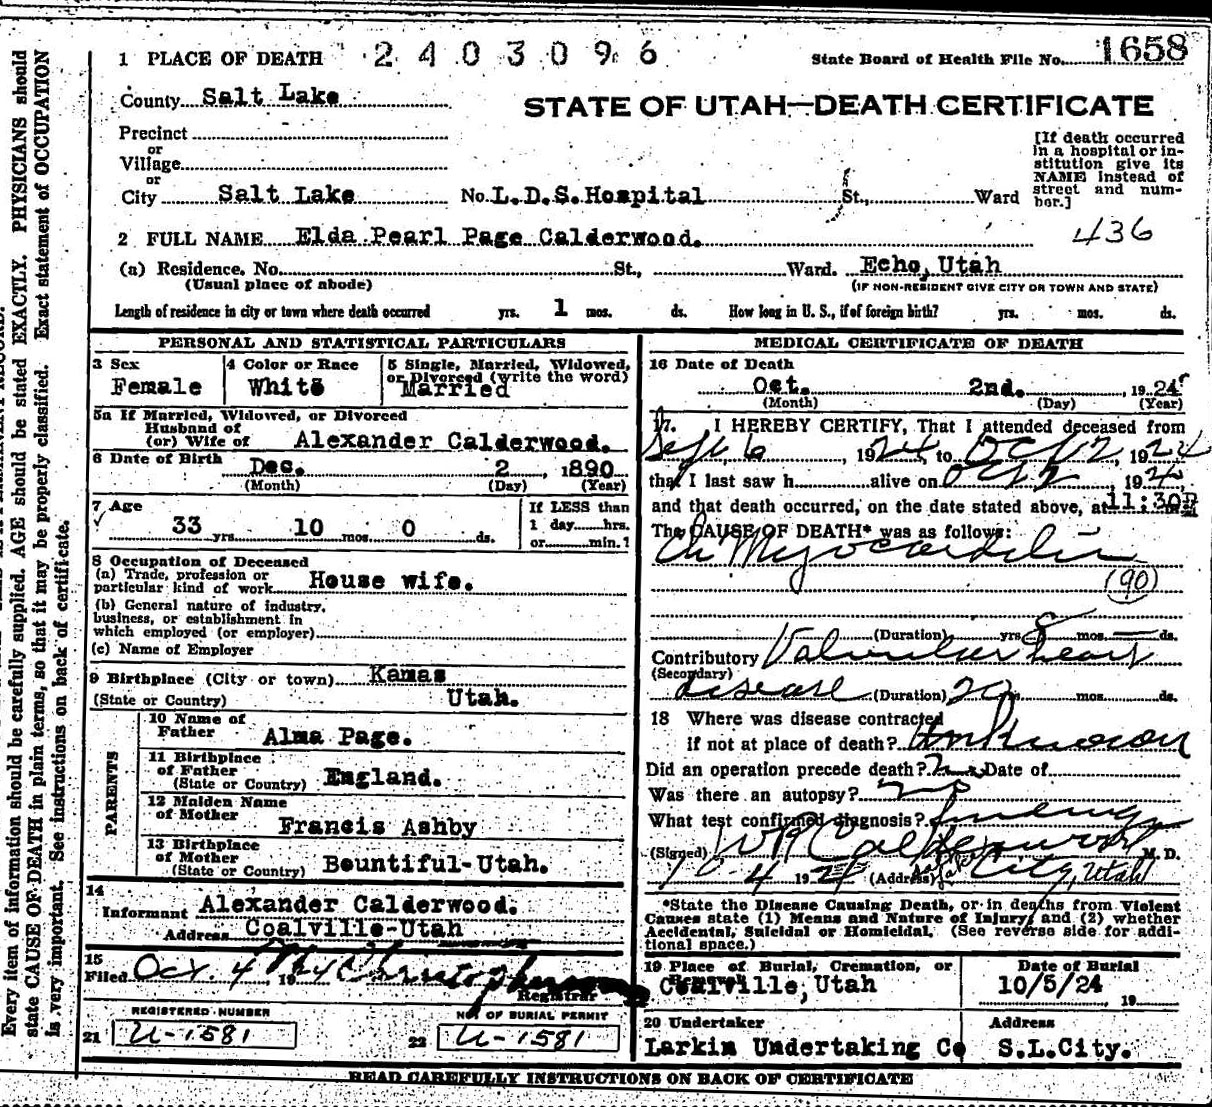 1 PLACE OF DEATH 2403096 State Board of Health File No. 1658
County Salt Lake
STATE OF UTAH—DEATH CERTIFICATE
Precinct
or
Village
or
City Salt Lake No. L.D.S. Hospital St., Ward
[If death occurred
in a hospital or in-
stitution give its
NAME instead of
street and num-
ber.]
2 FULL NAME Elda Pearl Page Calderwood. 436
(a) Residence. No. St., Ward. Echo, Utah
(Usual place of abode) (IF NON-RESIDENT GIVE CITY OR TOWN AND STATE)
Length of residence in city or town where death occurred yrs. 1 mos. ds. How long in U. S., if of foreign birth? yrs. mos. ds.
PERSONAL AND STATISTICAL PARTICULARS
3 Sex
Female
4 Color or Race
White
5 Single, Married, Widowed,
or Divorced (write the word)
Married
5a If Married, Widowed, or Divorced
Husband of
(or) Wife of Alexander Calderwood.
6 Date of Birth Dec. 2 , 1890
(Month) (Day) (Year)
7 Age
33 yrs. 10 mos. 0 ds.
If LESS than
1 day hrs.
or min. ?
8 Occupation of Deceased
(a) Trade, profession or
particular kind of work House wife.
(b) General nature of industry,
business, or establishment in
which employed (or employer)
(c) Name of Employer
9 Birthplace (City or town) Kamas
(State or Country) Utah.
PARENTS
10 Name of
Father Alma Page.
11 Birthplace
of Father
(State or Country) England.
12 Maiden Name
of Mother Francis Ashby
13 Birthplace
of Mother
(State or Country) Bountiful-Utah.
14
Informant Alexander Calderwood.
Address Coalville-Utah
15
Filed Oct. 4 1924
Registrar
REGISTERED NUMBER
21 U-1581
NO. OF BURIAL PERMIT
22 U-1581
MEDICAL CERTIFICATE OF DEATH
16 Date of Death
Oct. 2nd. , 1924
(Month) (Day) (Year)
17. I HEREBY CERTIFY, That I attended deceased from
Sept 6 , 1924 to Oct 2 , 1924
that I last saw h alive on Oct 2 , 1924
and that death occurred, on the date stated above, at 11:30P m
The CAUSE OF DEATH* was as follows:
Ch Myocarditis
(90)
(Duration) yrs 8 mos. — ds.
Contributory Valvular heart
(Secondary)
disease (Duration) 20 yrs. mos. ds.
18 Where was disease contracted
if not at place of death? Unknown
Did an operation precede death? no Date of
Was there an autopsy? no
What test confirmed diagnosis?
(Signed) W R Calderwood M. D.
10-4 1924 (Address) Salt Lake City, Utah
*State the Disease Causing Death, or in deaths from Violent
Causes state (1) Means and Nature of Injury; and (2) whether
Accidental, Suicidal or Homicidal. (See reverse side for addi-
tional space.)
19 Place of Burial, Cremation, or
Coalville, Utah
Date of Burial
10/5/24 , 19
20 Undertaker
Larkin Undertaking Co
Address
S.L.City.
READ CAREFULLY INSTRUCTIONS ON BACK OF CERTIFICATE
Every item of information should be carefully supplied. AGE should be stated EXACTLY. PHYSICIANS should
state CAUSE OF DEATH in plain terms, so that it may be properly classified. Exact statement of OCCUPATION
is very important. See instructions on back of certificate.